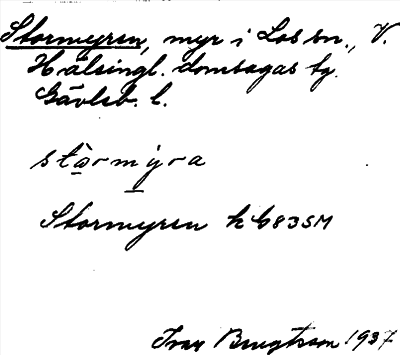 Stormyren, myr i Los sn., V.
Hälsingl. domsagas tg.
Gävleb. l.
stormyra
Stormyren h 683SM
Ivar Bengtsson 1937